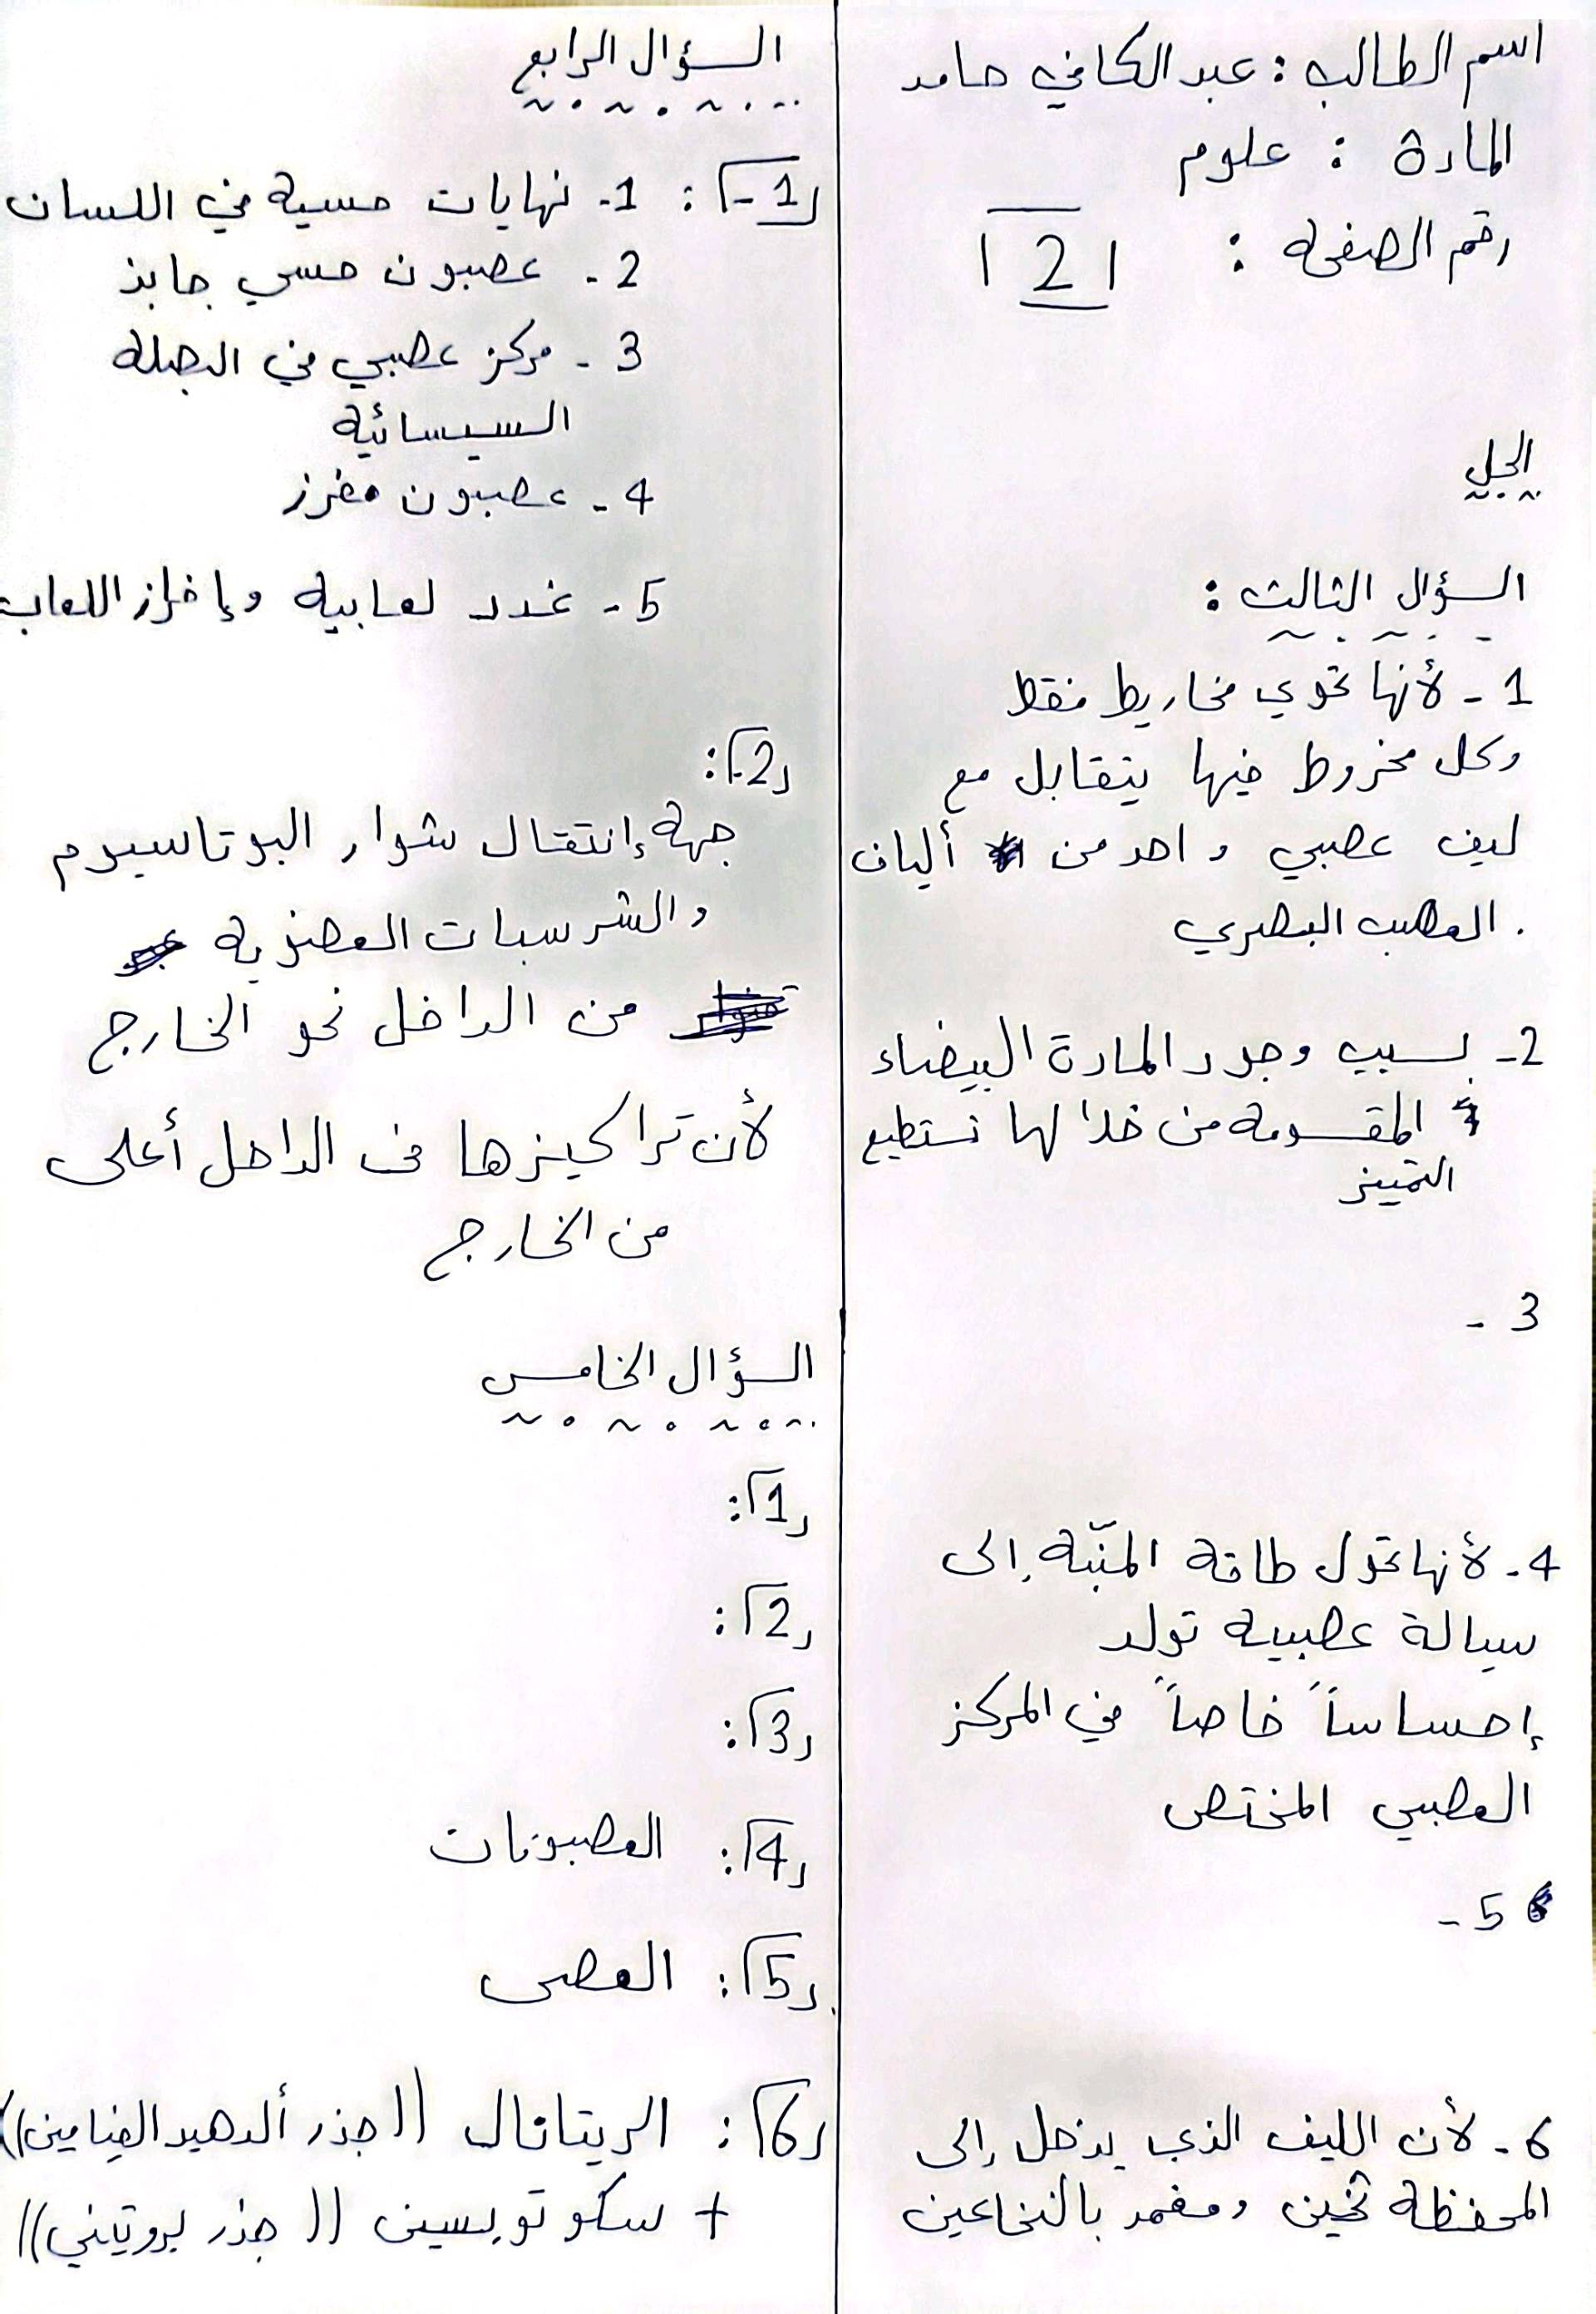 اسم الطالب : عبد الكافي حامد
المادة : علوم
رقم الصفحة : 2
الحل
السؤال الثالث :
1 - لأنها تحوي مخاريط فقط
وكل مخروط فيها يتقابل مع
ليف عصبي واحد من ألياف
العصب البصري .
2 - بسبب وجود المادة البيضاء
المقسومة من خلالها نستطيع
التمييز
3 -
4 - لأنها تحول طاقة المنبّه إلى
سيالة عصبية تولد
إحساساً خاصاً في المركز
العصبي المختص
5 -
6 - لأن الليف الذي يدخل إلى
المحفظة ثخين ومغمد بالنخاعين
السؤال الرابع
1- : 1 - نهايات حسية في اللسان
2 - عصبون حسي جابذ
3 - مركز عصبي في البصلة
السيسائية
4 - عصبون مفرز
5 - غدد لعابية وإفراز اللعاب
2- :
جهة إنتقال شوارد البوتاسيوم
والشرسبات العضوية
من الداخل نحو الخارج
لأن تراكيزها في الداخل أعلى
من الخارج
السؤال الخامس
1 :
2 :
3 :
4 : العصبونات
5 : العصي
6 : الريتنال (( جذر ألدهيد الفيتامين ))
+ سكوتوبسين (( جذر بروتيني ))